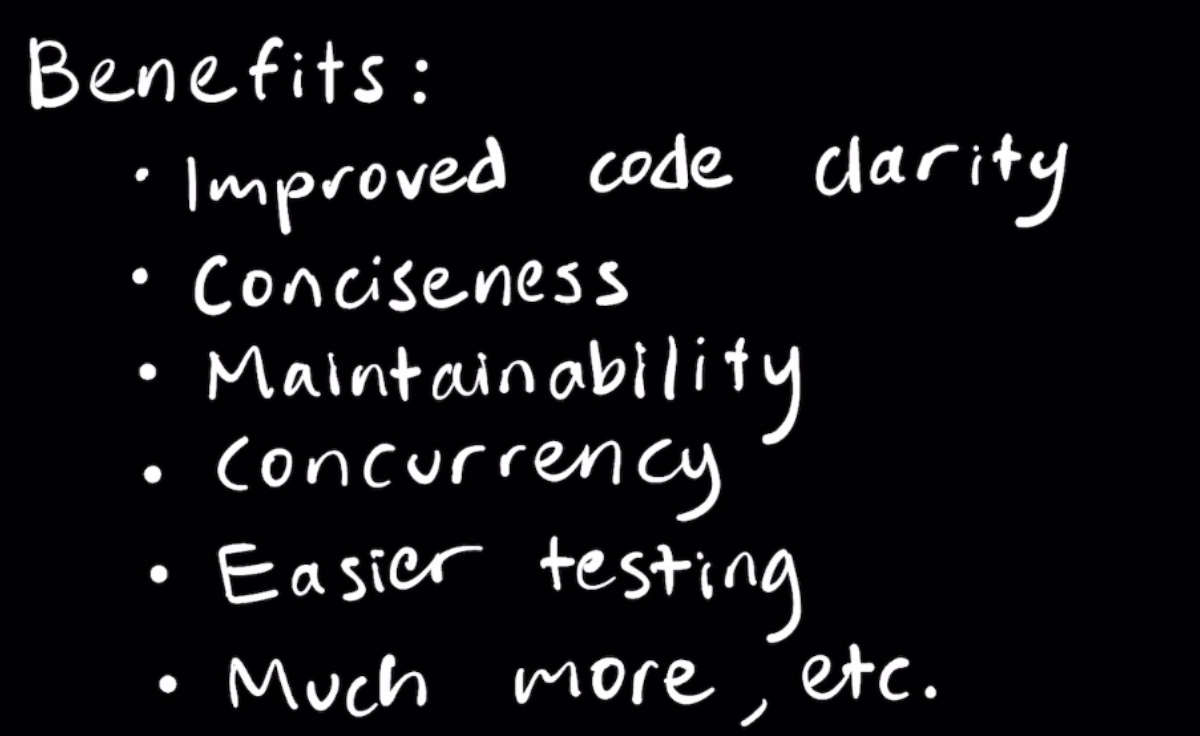 Benefits:
• Improved code clarity
• Conciseness
• Maintainability
• Concurrency
• Easier testing
• Much more, etc.